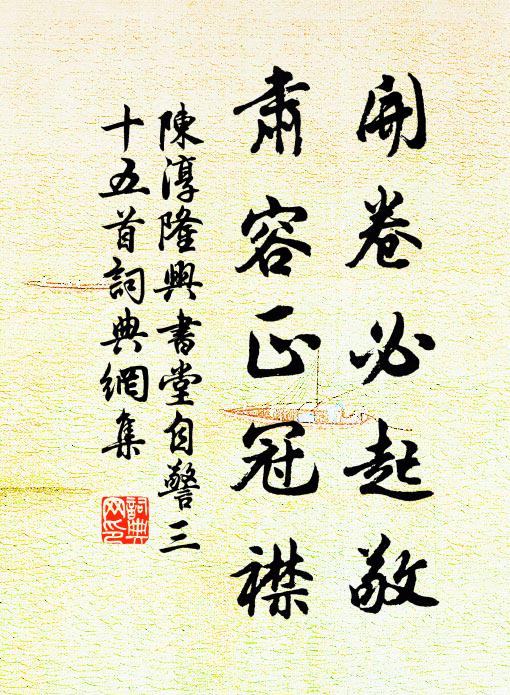 開卷必起敬
肅容正冠襟
陳淳隆興書堂自警三
十五首詞典網集
詞典
網印